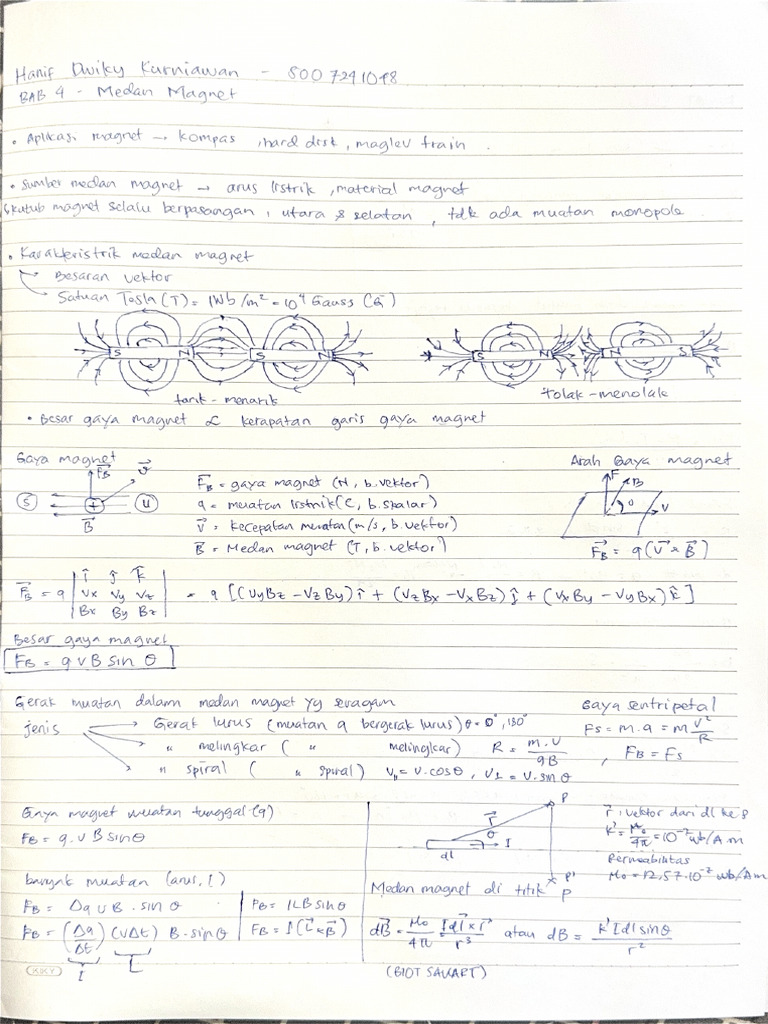 Hanif Dwiky Kurniawan - 5007241048
BAB 4 - Medan Magnet
• Aplikasi magnet → kompas, hard disk, maglev train.
• Sumber medan magnet → arus listrik, material magnet
↳ kutub magnet selalu berpasangan, utara & selatan, tdk ada muatan monopole.
• Karakteristik medan magnet
→ Besaran vektor
→ Satuan Tesla (T) = 1Wb/m² = 10⁴ Gauss (G)
S N S N
S N N S
tarik - menarik
tolak - menolak
• Besar gaya magnet ∝ kerapatan garis gaya magnet
Gaya magnet
Arah Gaya magnet
F⃗B v⃗
S + U
B⃗
F⃗B = gaya magnet (N, b. vektor)
q = muatan listrik (C, b. skalar)
v⃗ = kecepatan muatan (m/s, b. vektor)
B⃗ = Medan magnet (T, b. vektor)
F B θ V
F⃗B = q(v⃗ × B⃗)
F⃗B = q | î ĵ k̂ |
| Vx Vy Vz |
| Bx By Bz |
= q [(VyBz - VzBy)î + (VzBx - VxBz)ĵ + (VxBy - VyBx)k̂]
Besar gaya magnet
FB = q v B sin θ
Gerak muatan dalam medan magnet yg seragam
jenis → Gerak lurus (muatan q bergerak lurus) θ = 0°, 180°
→ " melingkar ( " melingkar) R = m.v/qB
→ " spiral ( " spiral) V∥ = V. cos θ, V⊥ = V. sin θ
Gaya sentripetal
Fs = m.a = m v²/R
, FB = Fs
Gaya magnet muatan tunggal (q)
FB = q. v B sin θ
banyak muatan (arus, I)
FB = Δq v B . sin θ
FB = (Δq/Δt) (vΔt) B . sin θ
I L
FB = I L B sin θ
FB = I (L⃗ × B⃗)
P
r⃗
θ
→ I
dl
P'
r⃗ : vektor dari dl ke P
k' = μ₀/4π = 10⁻⁷ wb/A.m
Permeabilitas
μ₀ = 12,57.10⁻⁷ wb/A.m
Medan magnet di titik P
dB⃗ = μ₀/4π I dl⃗ × r⃗/r³ atau dB = k' I dl sin θ/r²
(BIOT SAVART)
KIKY